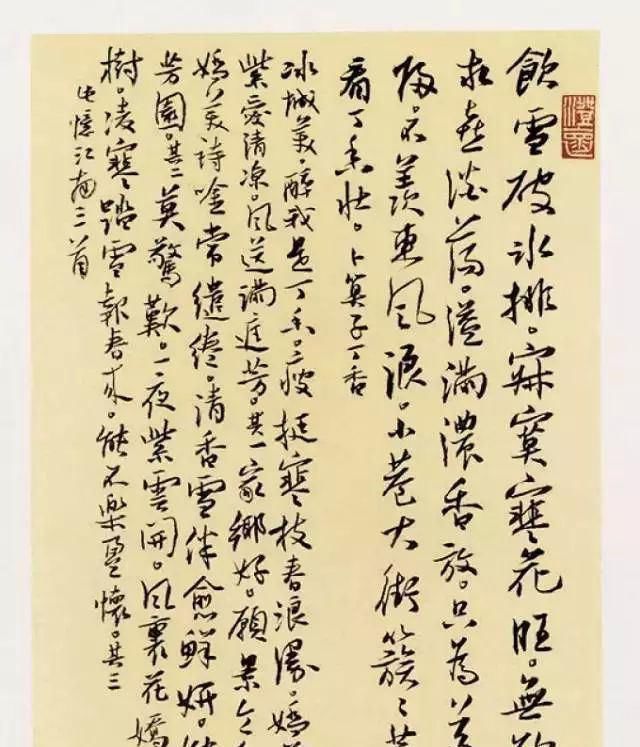 飲雪破冰排。寂寞寒花旺。無
淡蕩。溢滿濃香放。只為
不羨東風浪。小巷大街簇簇
看丁香壯。卜算子丁香
冰城美。醉我是丁香。瘦挺寒枝春浪漫。嬌
紫愛清涼。風送滿庭芳。其一家鄉好。願景
嬌。美詩吟常繾綣。清香雪伴愈鮮妍。
芳園。其二莫驚歎。一夜紫雲開。風裏花嬌
樹。凌寒踏雪報春來。能不樂盈懷。其三
憶江南三首